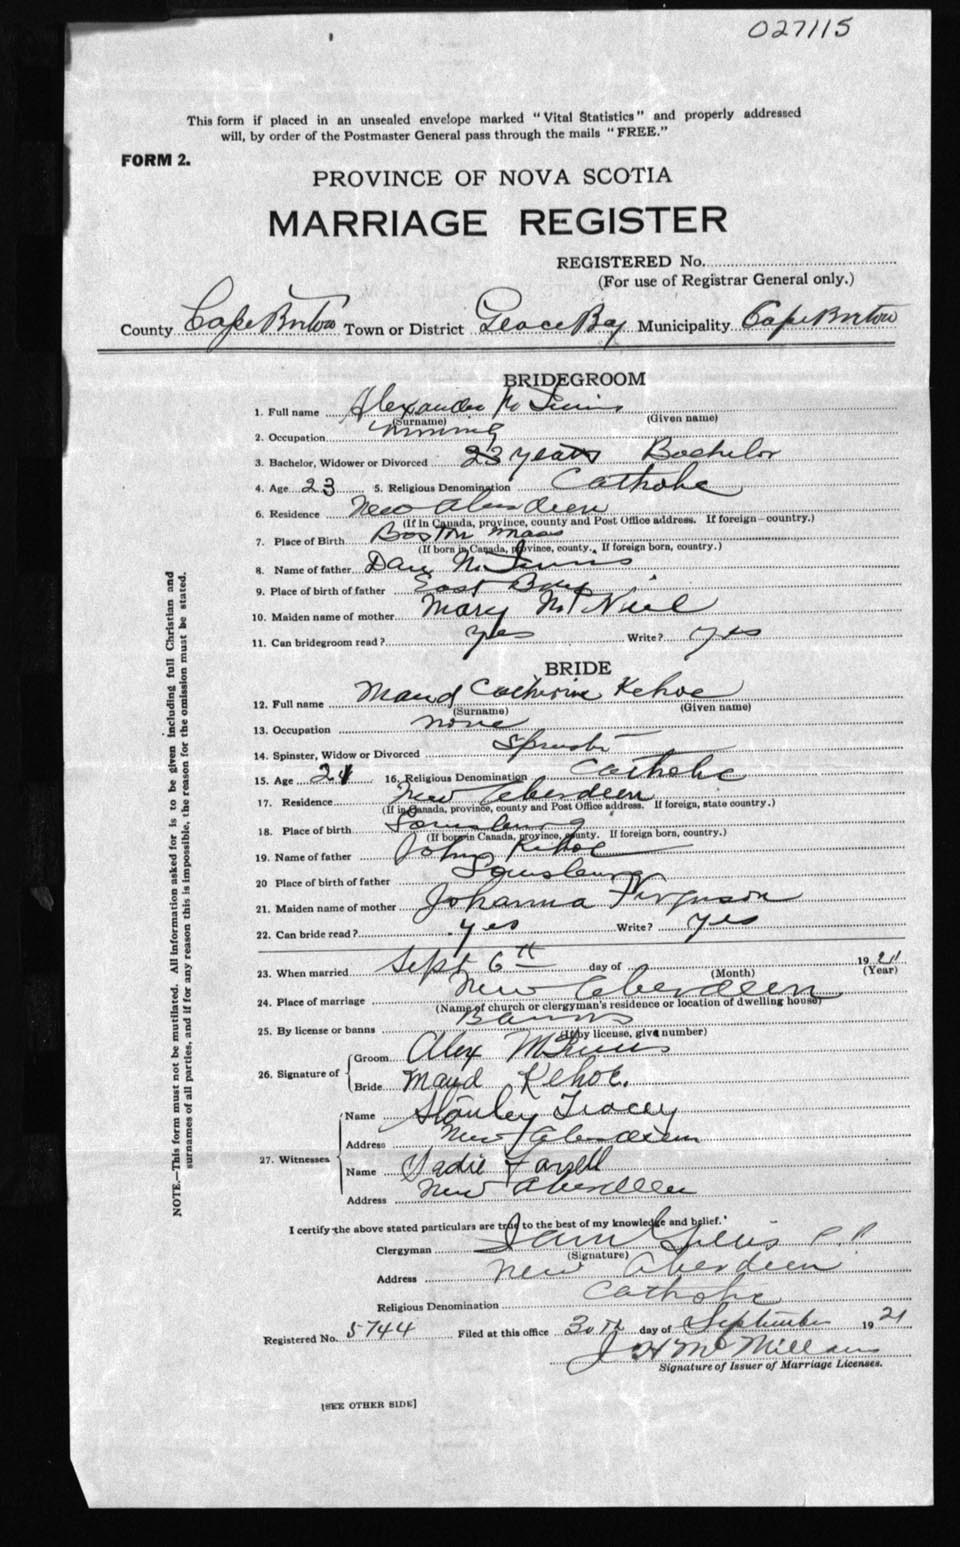 027115
This form if placed in an unsealed envelope marked "Vital Statistics" and properly addressed
will, by order of the Postmaster General pass through the mails "FREE."
FORM 2.
PROVINCE OF NOVA SCOTIA
MARRIAGE REGISTER
REGISTERED No.
(For use of Registrar General only.)
County Cape Breton Town or District Glace Bay Municipality Cape Breton
BRIDEGROOM
1. Full name Alexander
(Surname) (Given name)
2. Occupation mining
3. Bachelor, Widower or Divorced 23 years Bachelor
4. Age 23 5. Religious Denomination Catholic
6. Residence New Aberdeen
(If in Canada, province, county and Post Office address. If foreign country.)
7. Place of Birth Boston Mass
(If born in Canada, province, county. If foreign born, country.)
8. Name of father Dan
9. Place of birth of father East Bay
10. Maiden name of mother Mary McNeil
11. Can bridegroom read? yes Write? yes
BRIDE
12. Full name Maud Catherine Kehoe
(Surname) (Given name)
13. Occupation none
14. Spinster, Widow or Divorced Spinster
15. Age 21 16. Religious Denomination Catholic
17. Residence New Aberdeen
(If in Canada, province, county and Post Office address. If foreign, state country.)
18. Place of birth Louisburg
(If born in Canada, province, county. If foreign born, country.)
19. Name of father John Kehoe
20 Place of birth of father Louisburg
21. Maiden name of mother Johanna Ferguson
22. Can bride read? yes Write? yes
23. When married Sept 6th day of 1921
(Month) (Year)
24. Place of marriage New Aberdeen
(Name of church or clergyman's residence or location of dwelling house)
25. By license or banns Banns
(If by license, give number)
26. Signature of Groom Alex
Bride Maud Kehoe.
27. Witnesses Name Stanley Tracey
Address New Aberdeen
Name Sadie Farrell
Address New Aberdeen
I certify the above stated particulars are true to the best of my knowledge and belief.
Clergyman P.P.
(Signature)
Address New Aberdeen
Religious Denomination Catholic
Registered No. 5744 Filed at this office 30th day of September 1921
J H McMillan
Signature of Issuer of Marriage Licenses.
[SEE OTHER SIDE]
NOTE.—This form must not be mutilated. All information asked for is to be given including full Christian and
surnames of all parties, and if for any reason this is impossible, the reason for the omission must be stated.